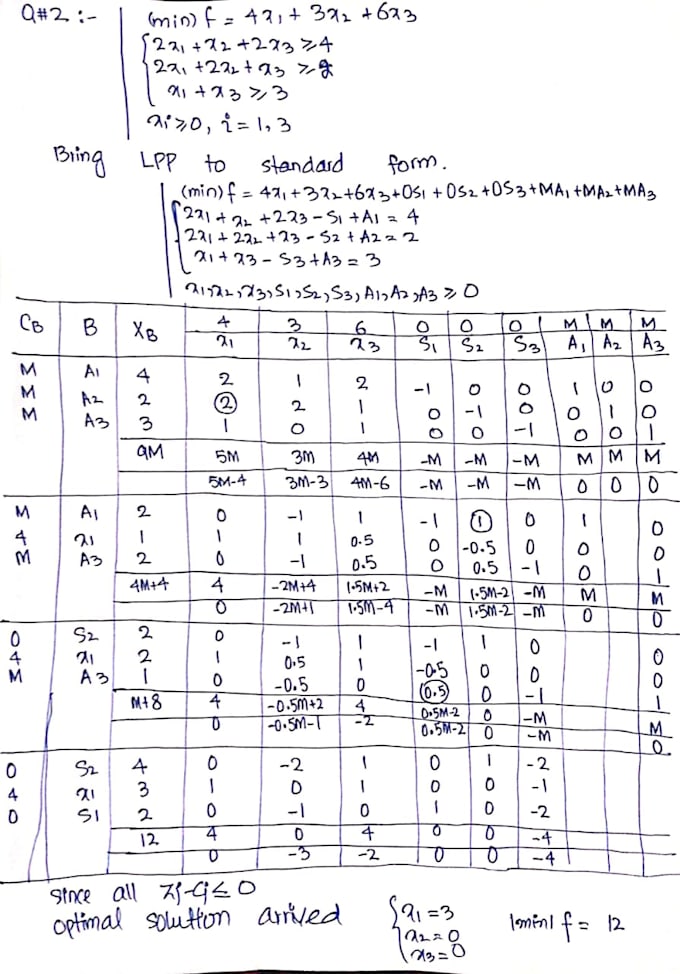 Q#2 :- (min) f = 4x1 + 3x2 + 6x3
2x1 + x2 + 2x3 ≥ 4
2x1 + 2x2 + x3 ≥ 2
x1 + x3 ≥ 3
xi ≥ 0, i = 1, 3
Bring LPP to standard form.
(min) f = 4x1 + 3x2 + 6x3 + 0S1 + 0S2 + 0S3 + MA1 + MA2 + MA3
2x1 + x2 + 2x3 - S1 + A1 = 4
2x1 + 2x2 + x3 - S2 + A2 = 2
x1 + x3 - S3 + A3 = 3
x1, x2, x3, S1, S2, S3, A1, A2, A3 ≥ 0
4 3 6 0 0 0 M M M
CB B XB x1 x2 x3 S1 S2 S3 A1 A2 A3
M A1 4 2 1 2 -1 0 0 1 0 0
M A2 2 2 2 1 0 -1 0 0 1 0
M A3 3 1 0 1 0 0 -1 0 0 1
9M 5M 3M 4M -M -M -M M M M
5M-4 3M-3 4M-6 -M -M -M 0 0 0
M A1 2 0 -1 1 -1 1 0 1 0
4 x1 1 1 1 0.5 0 -0.5 0 0 0
M A3 2 0 -1 0.5 0 0.5 -1 0 1
4M+4 4 -2M+4 1.5M+2 -M 1.5M-2 -M M M
0 -2M+1 1.5M-4 -M 1.5M-2 -M 0 0
0 S2 2 0 -1 1 -1 1 0 0
4 x1 2 1 0.5 1 -0.5 0 0 0
M A3 1 0 -0.5 0 0.5 0 -1 1
M+8 4 -0.5M+2 4 0.5M-2 0 -M M
0 -0.5M-1 -2 0.5M-2 0 -M 0
0 S2 4 0 -2 1 0 1 -2
4 x1 3 1 0 1 0 0 -1
0 S1 2 0 -1 0 1 0 -2
12 4 0 4 0 0 -4
0 -3 -2 0 0 -4
Since all Zj-Cj ≤ 0
optimal solution arrived x1 = 3
x2 = 0
x3 = 0
|min| f = 12